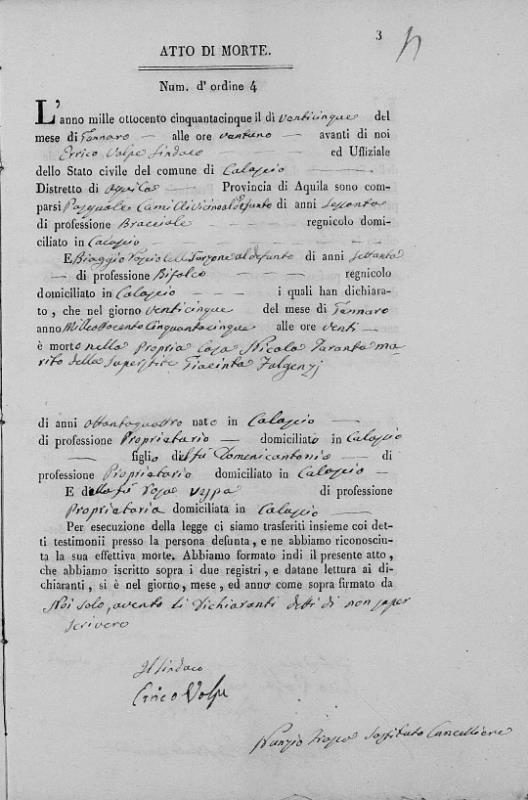 3
ATTO DI MORTE.
Num. d'ordine 4
L'anno mille ottocento cinquantacinque il dì venticinque del
mese di Jennaro — alle ore ventuno — avanti di noi
Errico Volpe Sindaco — ed Uffiziale
dello Stato civile del comune di Calascio —
Distretto di Aquila — Provincia di Aquila sono com-
parsi Pasquale Camilli Vicino al defunto di anni sessanta
di professione Bracciale — regnicolo domi-
ciliato in Calascio —
E Biaggio al defunto di anni settanta
— di professione Bifolco — regnicolo
domiciliato in Calascio — i quali han dichiara-
to, che nel giorno venticinque del mese di Jennaro
anno Milleottocento Cinquantacinque alle ore venti —
è morto nella Propria Casa Nicola Taranta ma-
rito della superstite Giacinta Fulgenzj
di anni ottantaquattro nato in Calascio —
di professione Proprietario — domiciliato in Calascio
— figlio di fu Domenicantonio — di
professione Proprietario domiciliato in Calascio —
E della fu Rosa di professione
Proprietaria domiciliata in Calascio —
Per esecuzione della legge ci siamo trasferiti insieme coi det-
ti testimonii presso la persona defunta, e ne abbiamo riconosciu-
ta la sua effettiva morte. Abbiamo formato indi il presente atto,
che abbiamo iscritto sopra i due registri, e datane lettura ai di-
chiaranti, si è nel giorno, mese, ed anno come sopra firmato da
Noi solo, avento li Dichiaranti detti di non saper
scrivere
Il Sindaco
Errico Volpe
Nunzio Sostituto Cancelliere